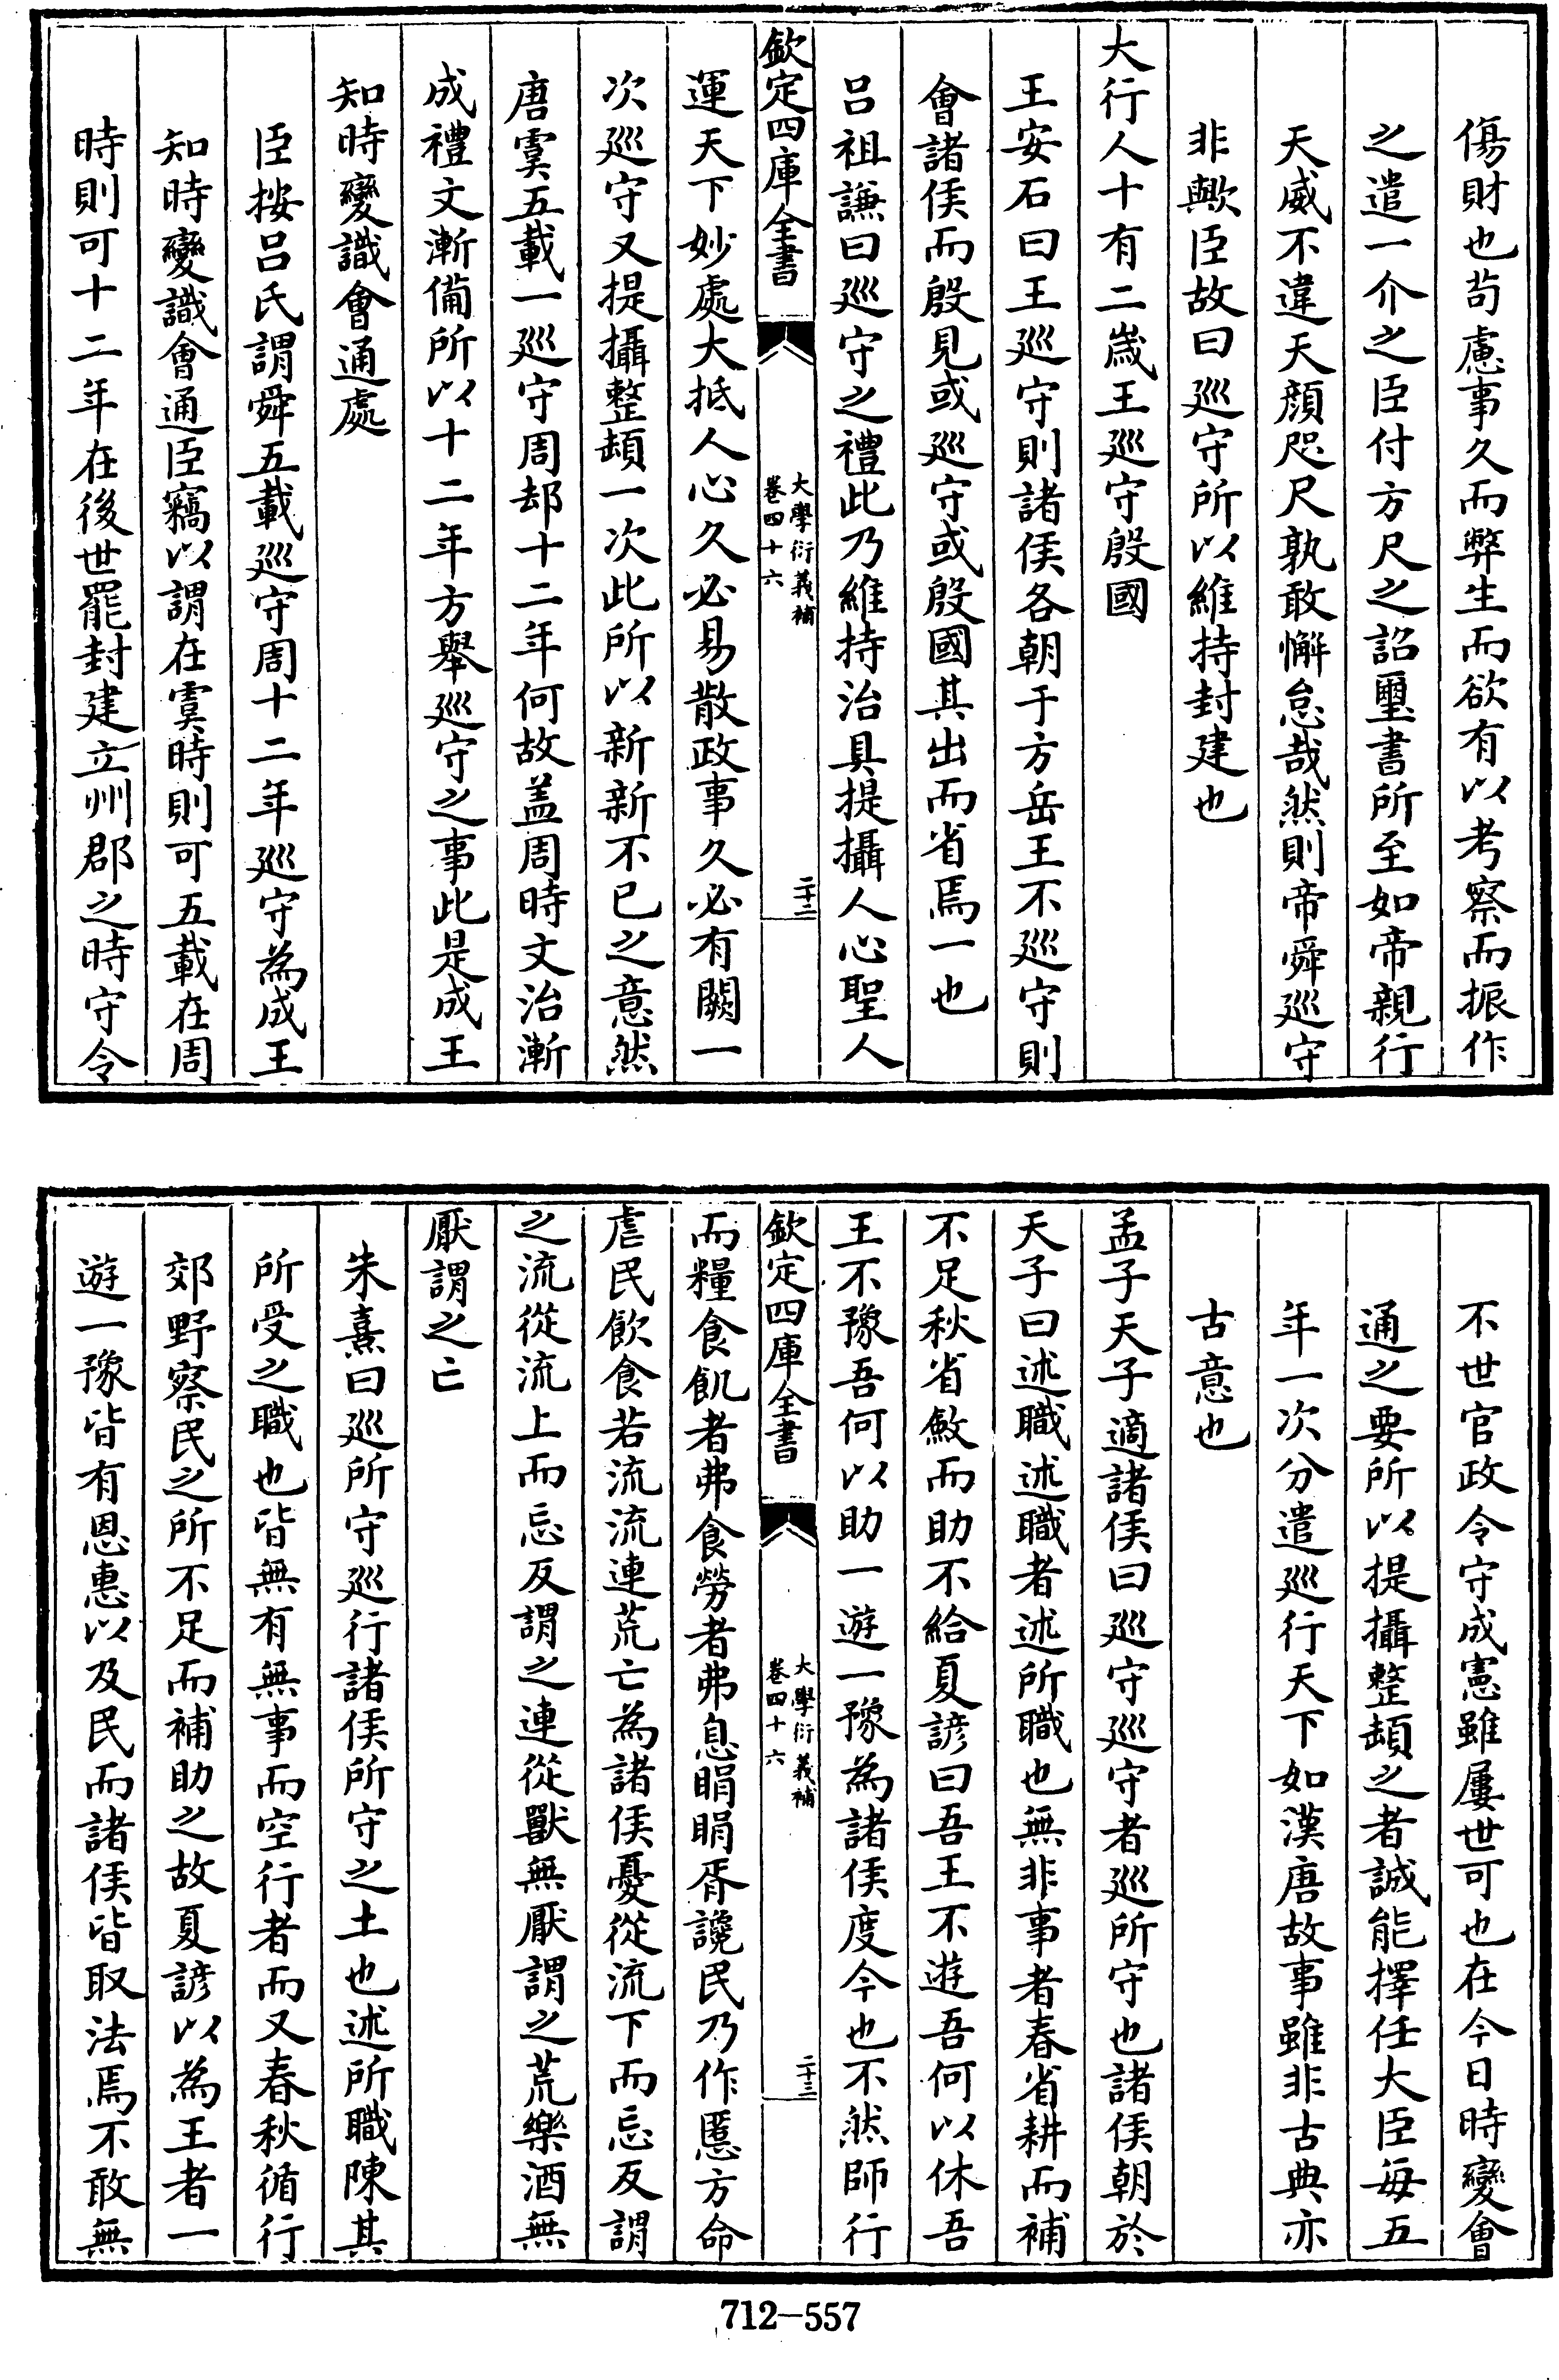 傷財也茍慮事久而弊生而欲有以考察而振作
之遣一介之臣付方尺之詔璽書所至如帝親行
天威不違天顔咫尺孰敢懈怠哉然則帝舜巡守
非歟臣故曰巡守所以維持封建也
大行人十有二歲王巡守殷國
王安石曰王巡守則諸侯各朝于方岳王不巡守則
會諸侯而殷見或巡守或殷國其出而省焉一也
吕祖謙曰巡守之禮此乃維持治具提攝人心聖人
欽定四庫全書
大學衍義補
卷四十六
二十二
運天下妙處大抵人心久必易散政事久必有闕一
次巡守又提攝整頓一次此所以新新不已之意然
唐虞五載一巡守周却十二年何故盖周時文治漸
成禮文漸備所以十二年方舉巡守之事此是成王
知時變識會通處
臣按吕氏謂舜五載巡守周十二年巡守為成王
知時變識會通臣竊以謂在虞時則可五載在周
時則可十二年在後世罷封建立州郡之時守令
不世官政令守成憲雖屢世可也在今日時變會
通之要所以提攝整頓之者誠能擇任大臣每五
年一次分遣巡行天下如漢唐故事雖非古典亦
古意也
孟子天子適諸侯曰巡守巡守者巡所守也諸侯朝於
天子曰述職述職者述所職也無非事者春省耕而補
不足秋省斂而助不給夏諺曰吾王不遊吾何以休吾
王不豫吾何以助一遊一豫為諸侯度今也不然師行
欽定四庫全書
大學衍義補
卷四十六
二十三
而糧食飢者弗食勞者弗息睊睊胥讒民乃作慝方命
虐民飲食若流流連荒亡為諸侯憂從流下而忘反謂
之流從流上而忘反謂之連從獸無厭謂之荒樂酒無
厭謂之亡
朱熹曰巡所守巡行諸侯所守之土也述所職陳其
所受之職也皆無有無事而空行者而又春秋循行
郊野察民之所不足而補助之故夏諺以為王者一
遊一豫皆有恩惠以及民而諸侯皆取法焉不敢無
712—557